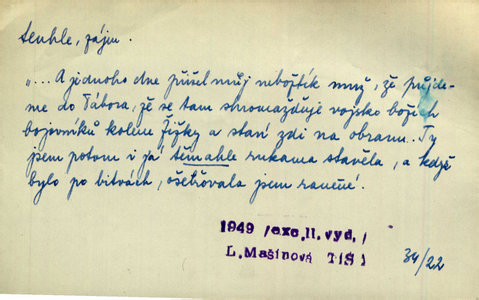 tenhle, zájm.
„... A jednoho dne přišel můj nebožtík muž, že půjde-
me do Tábora, že se tam shromažďuje vojsko božích
bojovníků kolem Žižky a staví zdi na obranu. Ty
jsem potom i já těmahle rukama stavěla, a když
bylo po bitvách, ošetřovala jsem raněné.
1949 /exc.II.vyd./
L.Mašínová TiS I
34/22